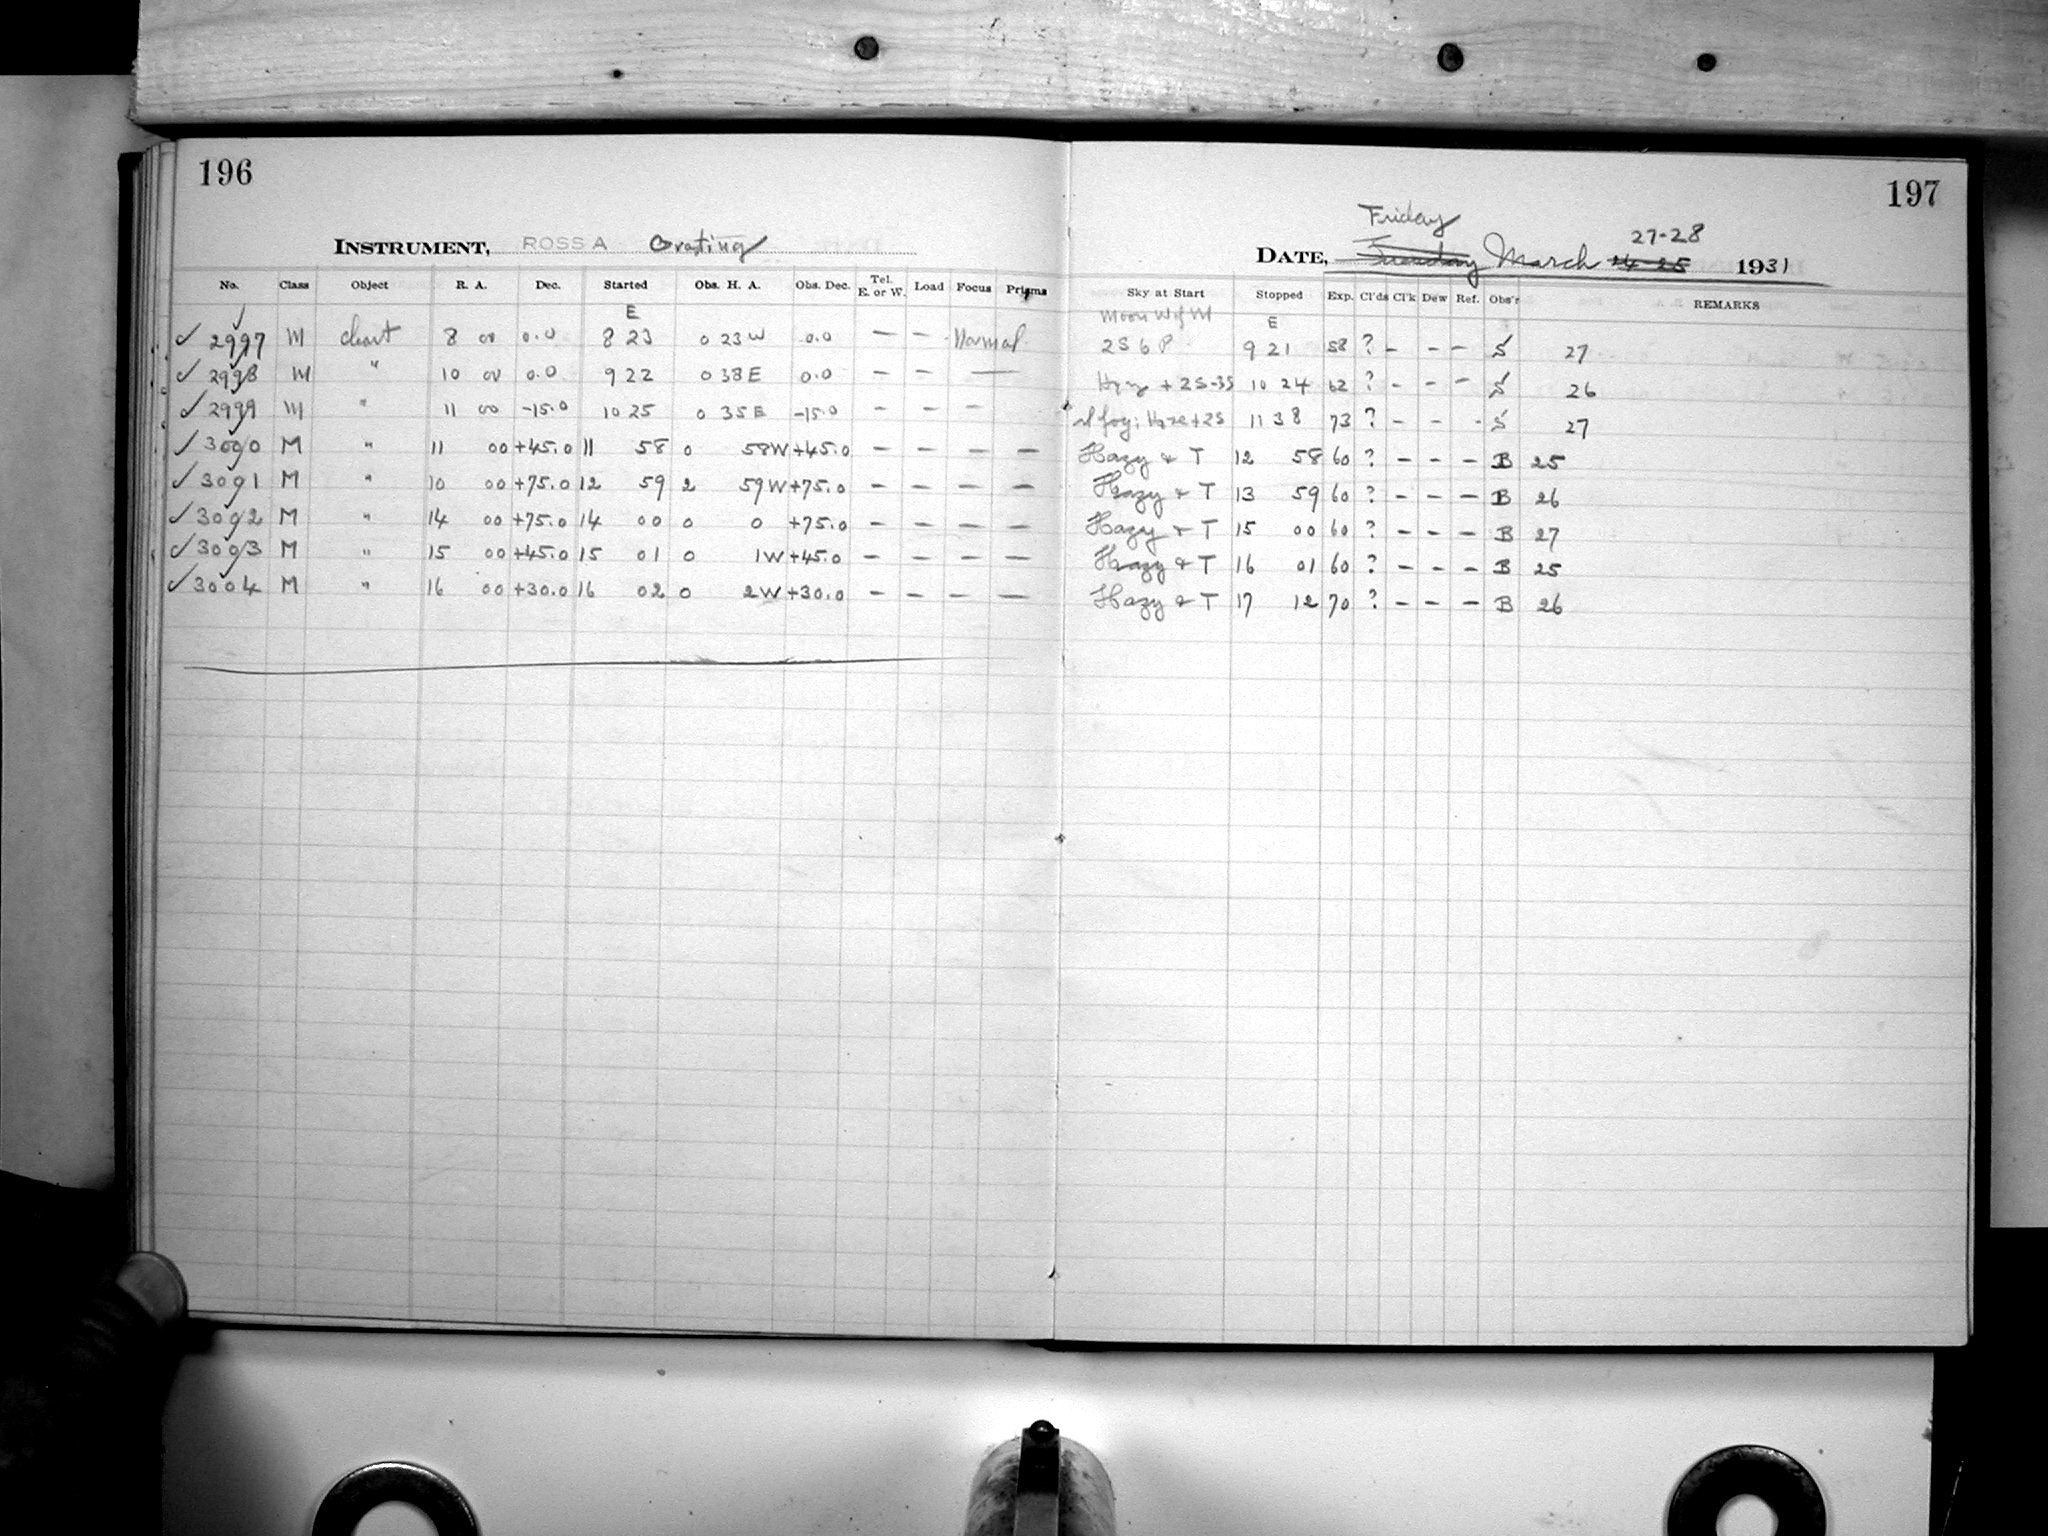 196
INSTRUMENT, ROSS A
No. Class Object R. A. Dec. Started Obs. H. A. Obs. Dec. Tel. E. or W. Load Focus Prisms
E
2997 M chart 8 00 0.0 8 23 0 23 W 0.0 — — Normal
2998 M " 10 00 0.0 9 22 0 38 E 0.0 — — —
2999 M " 11 00 -15.0 10 25 0 35 E -15.0 — — —
3000 M " 11 00 +45.0 11 58 0 58W +45.0 — — — —
3001 M " 10 00 +75.0 12 59 2 59W +75.0 — — — —
3002 M " 14 00 +75.0 14 00 0 0 +75.0 — — — —
3003 M " 15 00 +45.0 15 01 0 1W +45.0 — — — —
3004 M " 16 00 +30.0 16 02 0 2W +30.0 — — — —
197
Friday
27-28
DATE, Tuesday March 24-25 1931
Sky at Start Stopped Exp. Cl'ds Cl'k Dew Ref. Obs'r REMARKS
Moon W of M E
2S 6 P 9 21 58 ? - - - S 27
+ 2S-3S 10 24 62 ? - - - S 26
Haze+2S 11 38 73 ? - - - S 27
Hazy & T 12 58 60 ? - - - B 25
Hazy & T 13 59 60 ? - - - B 26
Hazy & T 15 00 60 ? - - - B 27
Hazy & T 16 01 60 ? - - - B 25
Hazy & T 17 12 70 ? - - - B 26